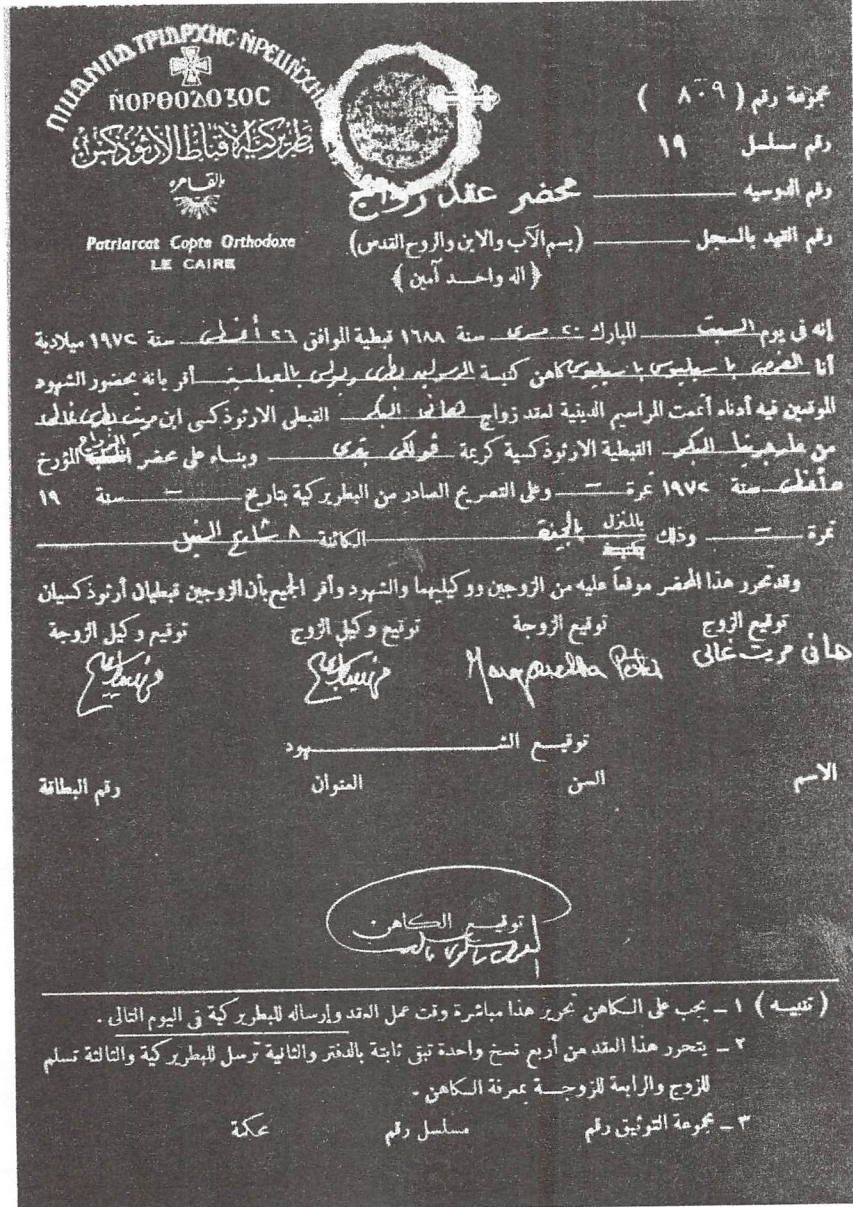 ΠΙΜΑΝΠΑΤΡΙΑΡΧΗC ΝΡΕΜΝΧΗΜΙ
ΝΟΡΘΟΔΟΞΟC
بطريركية الاقباط الارثوذكس
بالقاهرة
Patriarcat Copte Orthodoxe
LE CAIRE
مجموعة رقم ( ٨٠٩ )
رقم مسلسل ١٩
رقم الدوسيه
رقم القيد بالسجل
محضر عقد زواج
(بسم الآب والابن والروح القدس)
(اله واحد آمين)
إنه فى يوم السبت المبارك ٢٠ مسرى سنة ١٦٨٨ قبطية الموافق ٢٦ أغسطس سنة ١٩٧٢ ميلادية
أنا القمص باسيليوس باسيليوس كاهن كنيسة الرسولين بطرس وبولس بالعباسية أقر بانه بحضور الشهود
الموقعين فيه أدناه أتممت المراسيم الدينية لعقد زواج هانى البكر القبطى الارثوذكسى ابن مريت بطرس غالى
من مارجريتا البكر القبطية الارثوذكسية كريمة وبناء على محضر المؤرخ
أغسطس سنة ١٩٧٢ نمرة — وعلى التصريح الصادر من البطريركية بتاريخ — سنة ١٩
نمرة — وذلك بالمنزل بالجيزة الكائنة ٨ شارع النيل
وقد تحرر هذا المحضر موقعاً عليه من الزوجين ووكيليهما والشهود وأقر الجميع بأن الزوجين قبطيان أرثوذكسيان
توقيع الزوج توقيع الزوجة توقيع وكيل الزوج توقيع وكيل الزوجة
هانى مريت غالى Margaretha
توقيع الشهود
الاسم السن العنوان رقم البطاقة
توقيع الكاهن
(تنبيه) ١ – يجب على الكاهن تحرير هذا مباشرة وقت عمل العقد وإرساله للبطريركية فى اليوم التالى .
٢ – يتحرر هذا العقد من أربع نسخ واحدة تبقى ثابتة بالدفتر والثانية ترسل للبطريركية والثالثة تسلم
للزوج والرابعة للزوجة بمعرفة الكاهن .
٣ – مجموعة التوثيق رقم مسلسل رقم محكمة